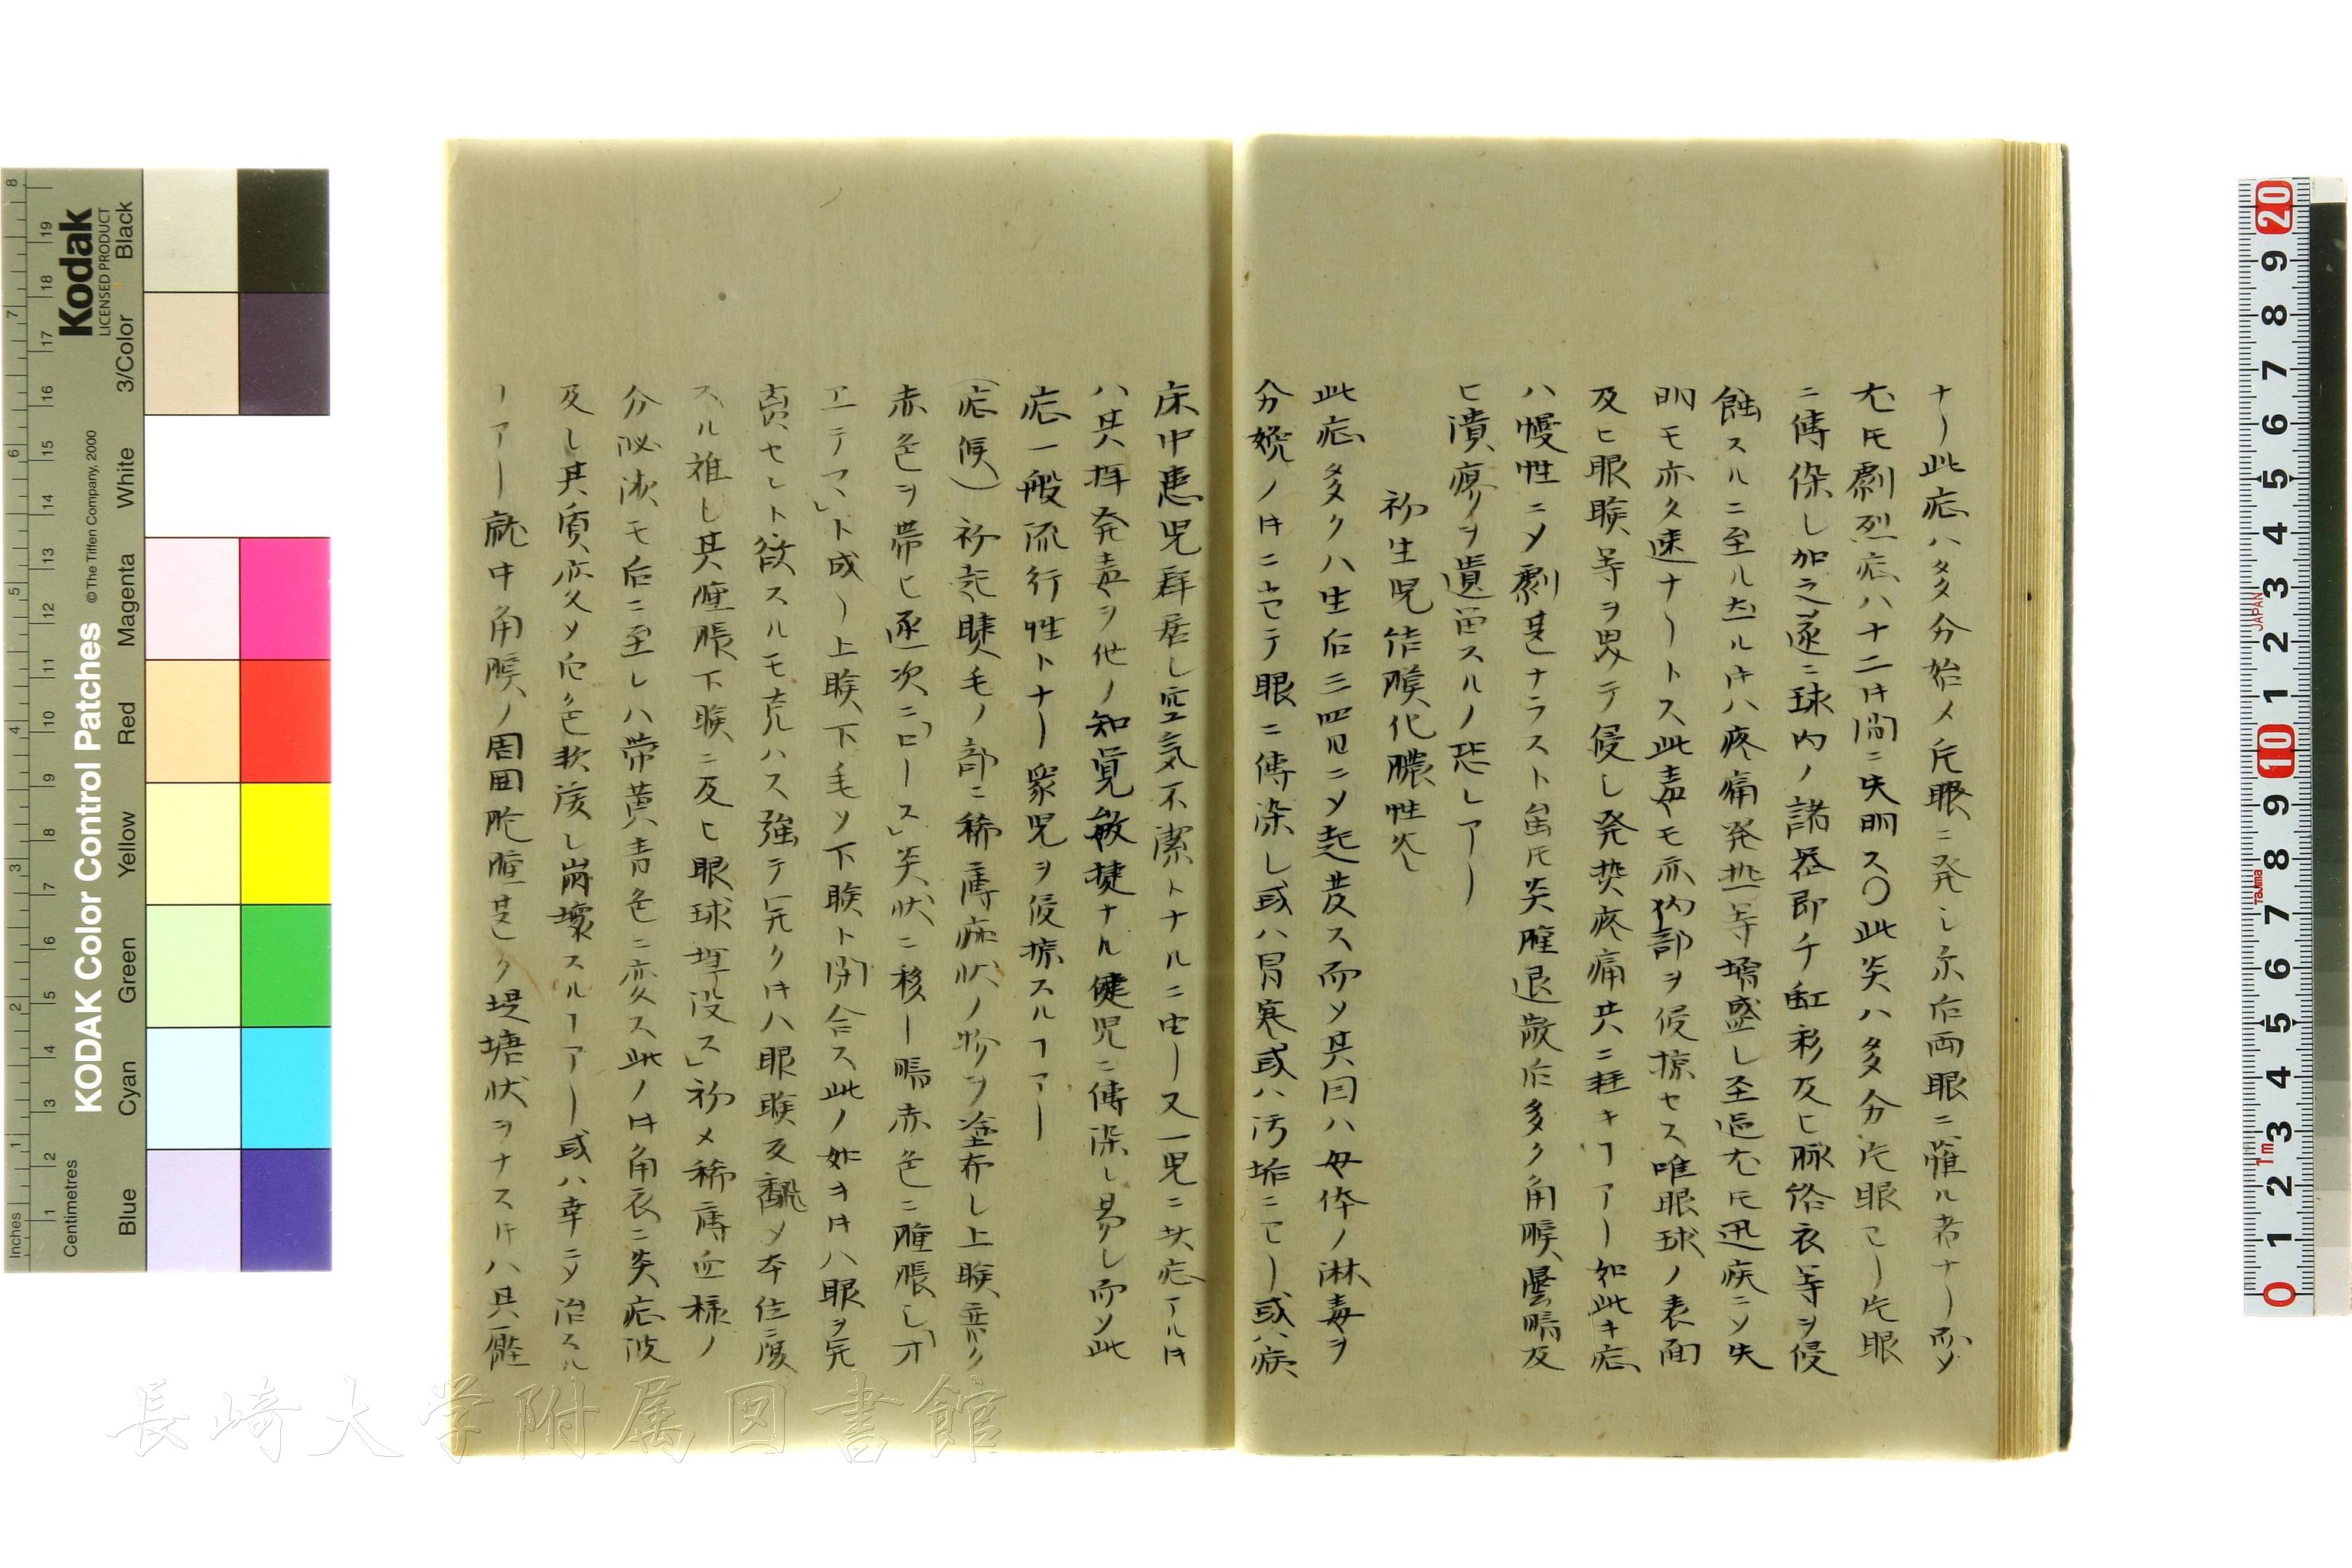 ナリ此症ハ多分始メ片眼ニ発シ尓后両眼ニ罹ル者ナリ而メ
尤モ劇烈症ハ十二时間ニ失明ス〇此炎ハ多分片眼ニ〆片眼
ニ傳染シ加之遂ニ球内ノ諸器即チ虹彩及ヒ脉絡衣等ヲ侵
蝕スルニ至ル然ル时ハ疼痛発熱等増盛シ至 尤モ迅疾ニメ失
明モ亦タ速ナリトス此毒ヤモ亦内部ヲ侵掠セス唯眼球ノ表面
及ヒ眼瞼等ヲ畧テ侵シ発熱疼痛共ニ軽キヿアリ如此キ症
ハ慢性ニメ劇甚ナラスト雖モ炎腫退散后多ク角膜曇暗及
ヒ潰瘍ヲ遺留スルノ恐レアリ
初生児結膜化膿性炎
此症多クハ生后三四日ニメ起発ス而メ其因ハ母体ノ淋毒ヲ
分娩ノ时ニ当テ眼ニ傳染シ或ハ冒寒或ハ汚垢ニ 或ハ病
床中患児群居シ空気不潔トナルニ由リ又一児ニ其症アル时
ハ其揮発毒ヲ他ノ知覚敏捷ナル健児ニ傳染シ易シ而メ此
症一般流行性トナリ衆児ヲ侵掠スルヿアリ
(症候)初起睫毛ノ部ニ稀薄痂状ノ物ヲ塗布シ上瞼 ク
赤色ヲ帯ヒ逐次ニ「ロース」炎状ニ移リ暗赤色ニ腫脹シ「オ
エテマ」ト成リ上瞼下毛メ下瞼ト閉合ス此ノ如キ时ハ眼ヲ完
 セント欲スルモ克ハス強テ完ク时ハ眼瞼反飜メ本位ニ復
スル難シ其腫脹下瞼ニ及ヒ眼球埋没ス」初メ稀薄血様ノ
分泌液モ后ニ至レハ帯黄青色ニ変ス此ノ时角衣ニ炎症波
及シ其質変メ灰色軟 シ崩壊スルヿアリ或ハ幸ニメ治スル
ヿアリ就中角膜ノ周囲 腫甚ク堤塘状ヲナス时ハ其
長崎大学附属図書館
KODAK Color Control Patches
© The Tiffen Company, 2000
Kodak
LICENSED PRODUCT
Inches
Centimetres
Blue Cyan Green Yellow Red Magenta White 3/Color Black
JAPAN
Tajima